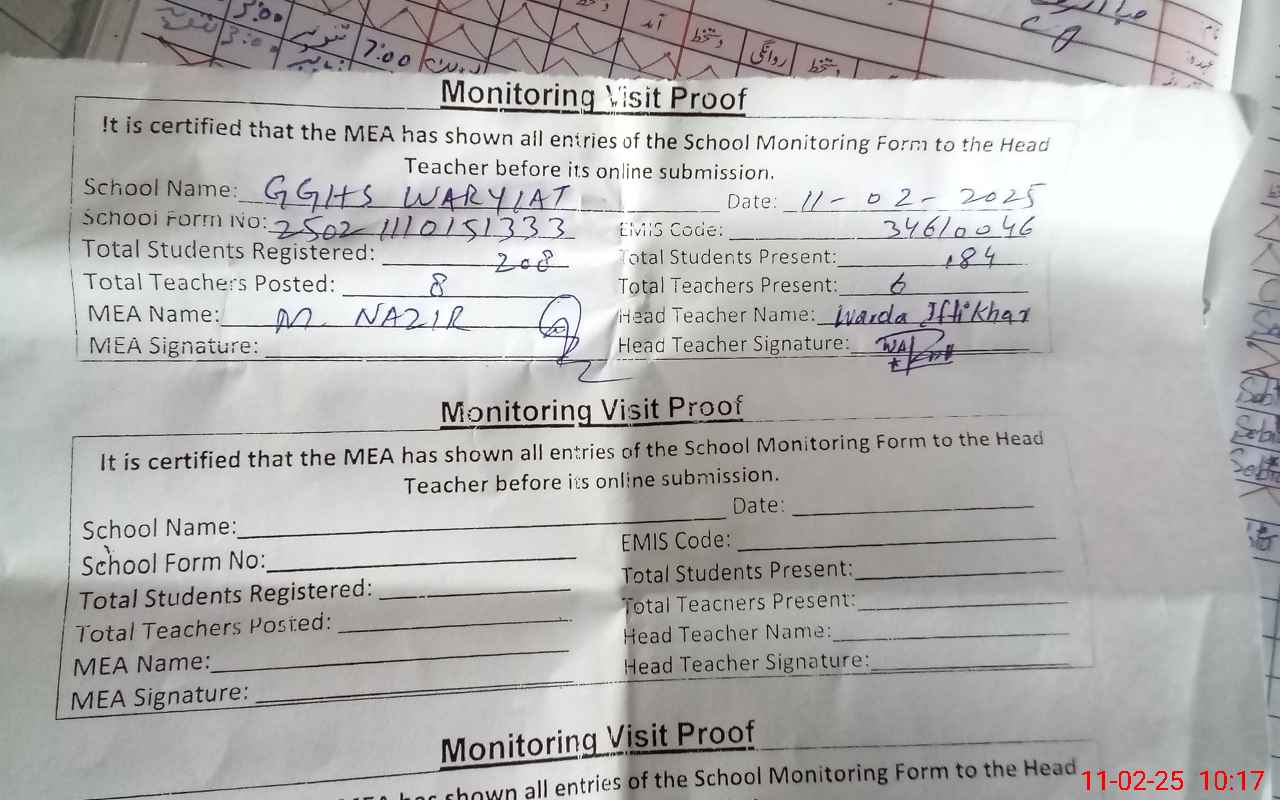 3:00 تنویر 7:00
آمد دستخط روانگی دستخط
نام
عہدہ
Monitoring Visit Proof
It is certified that the MEA has shown all entries of the School Monitoring Form to the Head
Teacher before its online submission.
School Name: GGHS WARYIAT Date: 11-02-2025
School Form No: 2502 1110151333 EMIS Code: 34610046
Total Students Registered: 208 Total Students Present: 184
Total Teachers Posted: 8 Total Teachers Present: 6
MEA Name: M. NAZIR Head Teacher Name: Warda Iftikhar
MEA Signature: Head Teacher Signature:
Monitoring Visit Proof
It is certified that the MEA has shown all entries of the School Monitoring Form to the Head
Teacher before its online submission.
School Name: Date:
School Form No: EMIS Code:
Total Students Registered: Total Students Present:
Total Teachers Posted: Total Teachers Present:
MEA Name: Head Teacher Name:
MEA Signature: Head Teacher Signature:
Monitoring Visit Proof
shown all entries of the School Monitoring Form to the Head
11-02-25 10:17